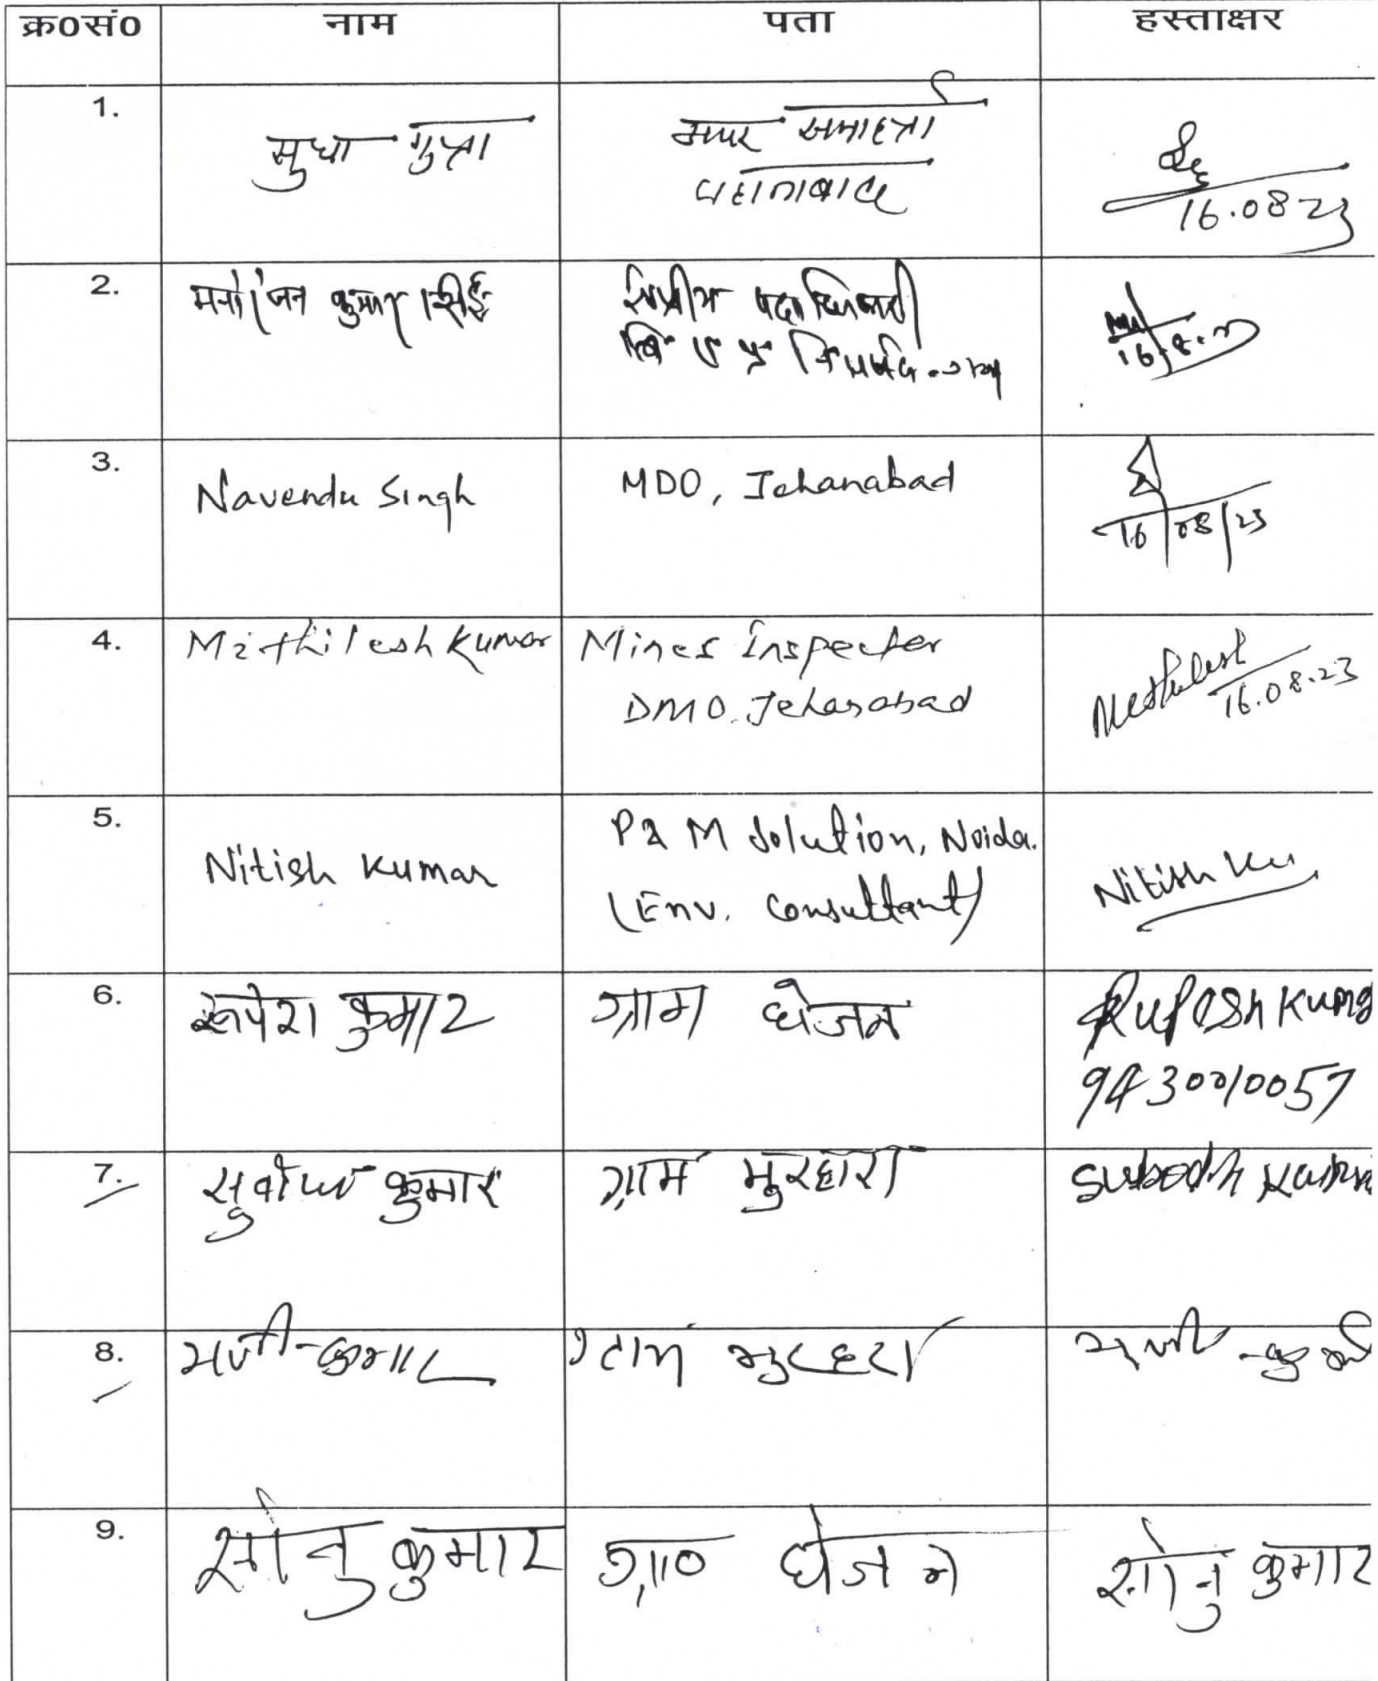 क्र०सं० नाम पता हस्ताक्षर
1. सुधा गुप्ता अपर समाहर्त्ता
जहानाबाद
16.08.23
2. मनोरंजन कुमार सिंह क्षेत्रीय पदाधिकारी
16.8.23
3. Navendu Singh MDO, Jehanabad
16/08/23
4. Mithilesh Kumar Mines Inspector
DMO. Jehanabad
Mithilesh
16.08.23
5. Nitish Kumar P&M Solution, Noida.
(Env. Consultant)
Nitish Ku
6. रूपेश कुमार ग्राम धेजन Rupesh Kumar
9430010057
7. सुबोध कुमार ग्राम मुरहारा Subodh Kumar
8. मणी कुमार ग्राम मुरहरा मणी कुमार
9. सोनु कुमार ग्रा० धेजन सोनु कुमार